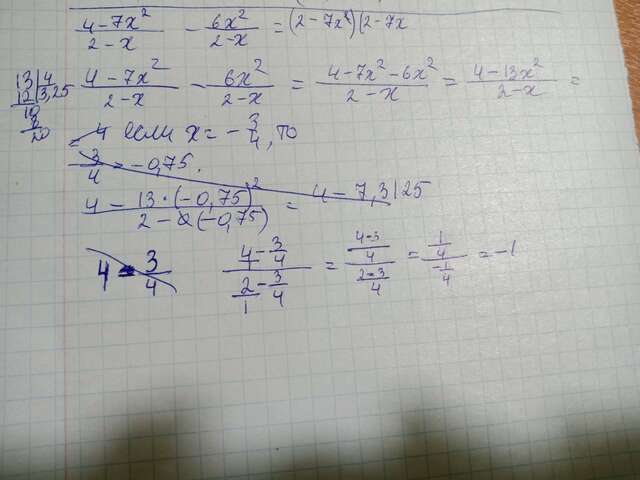 (4-7x²)/(2-x) - 6x²/(2-x) = (2-7x²)(2-7x
13 | 4
12 | 3,25
10
8
20
(4-7x²)/(2-x) - 6x²/(2-x) = (4-7x²-6x²)/(2-x) = (4-13x²)/(2-x) =
= 4 если x = -3/4, то
-3/4 = -0,75.
(4-13·(-0,75)²)/(2-(-0,75)) = 4-7,3125
4 - 3/4
(4/1 - 3/4)/(2/1 - 3/4) = ((4-3)/4)/((2-3)/4) = (1/4)/(-1/4) = -1